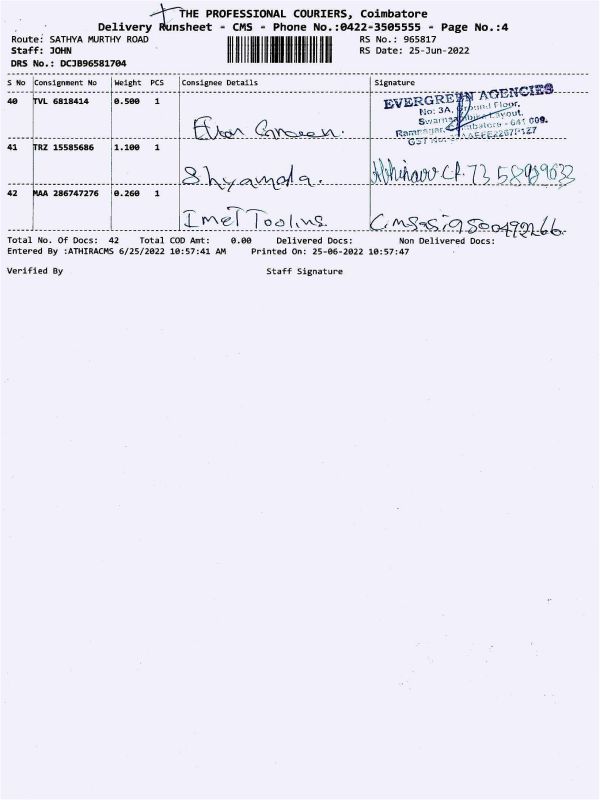 THE PROFESSIONAL COURIERS, Coimbatore
Delivery Runsheet - CMS - Phone No.:0422-3505555 - Page No.:4
Route: SATHYA MURTHY ROAD RS No.: 965817
Staff: JOHN RS Date: 25-Jun-2022
DRS No.: DCJB96581704
S No Consignment No Weight PCS Consignee Details Signature
40 TVL 6818414 0.500 1
EVERGREEN AGENCIES
No: 3A, Ground Floor,
Layout,
Ramnagar, Coimbatore - 641 009.
Green.
41 TRZ 15585686 1.100 1
Shyamala. Abhinav C.P.
42 MAA 286747276 0.260 1
Imet Tooling
Total No. Of Docs: 42 Total COD Amt: 0.00 Delivered Docs: Non Delivered Docs:
Entered By :ATHIRACMS 6/25/2022 10:57:41 AM Printed On: 25-06-2022 10:57:47
Verified By Staff Signature